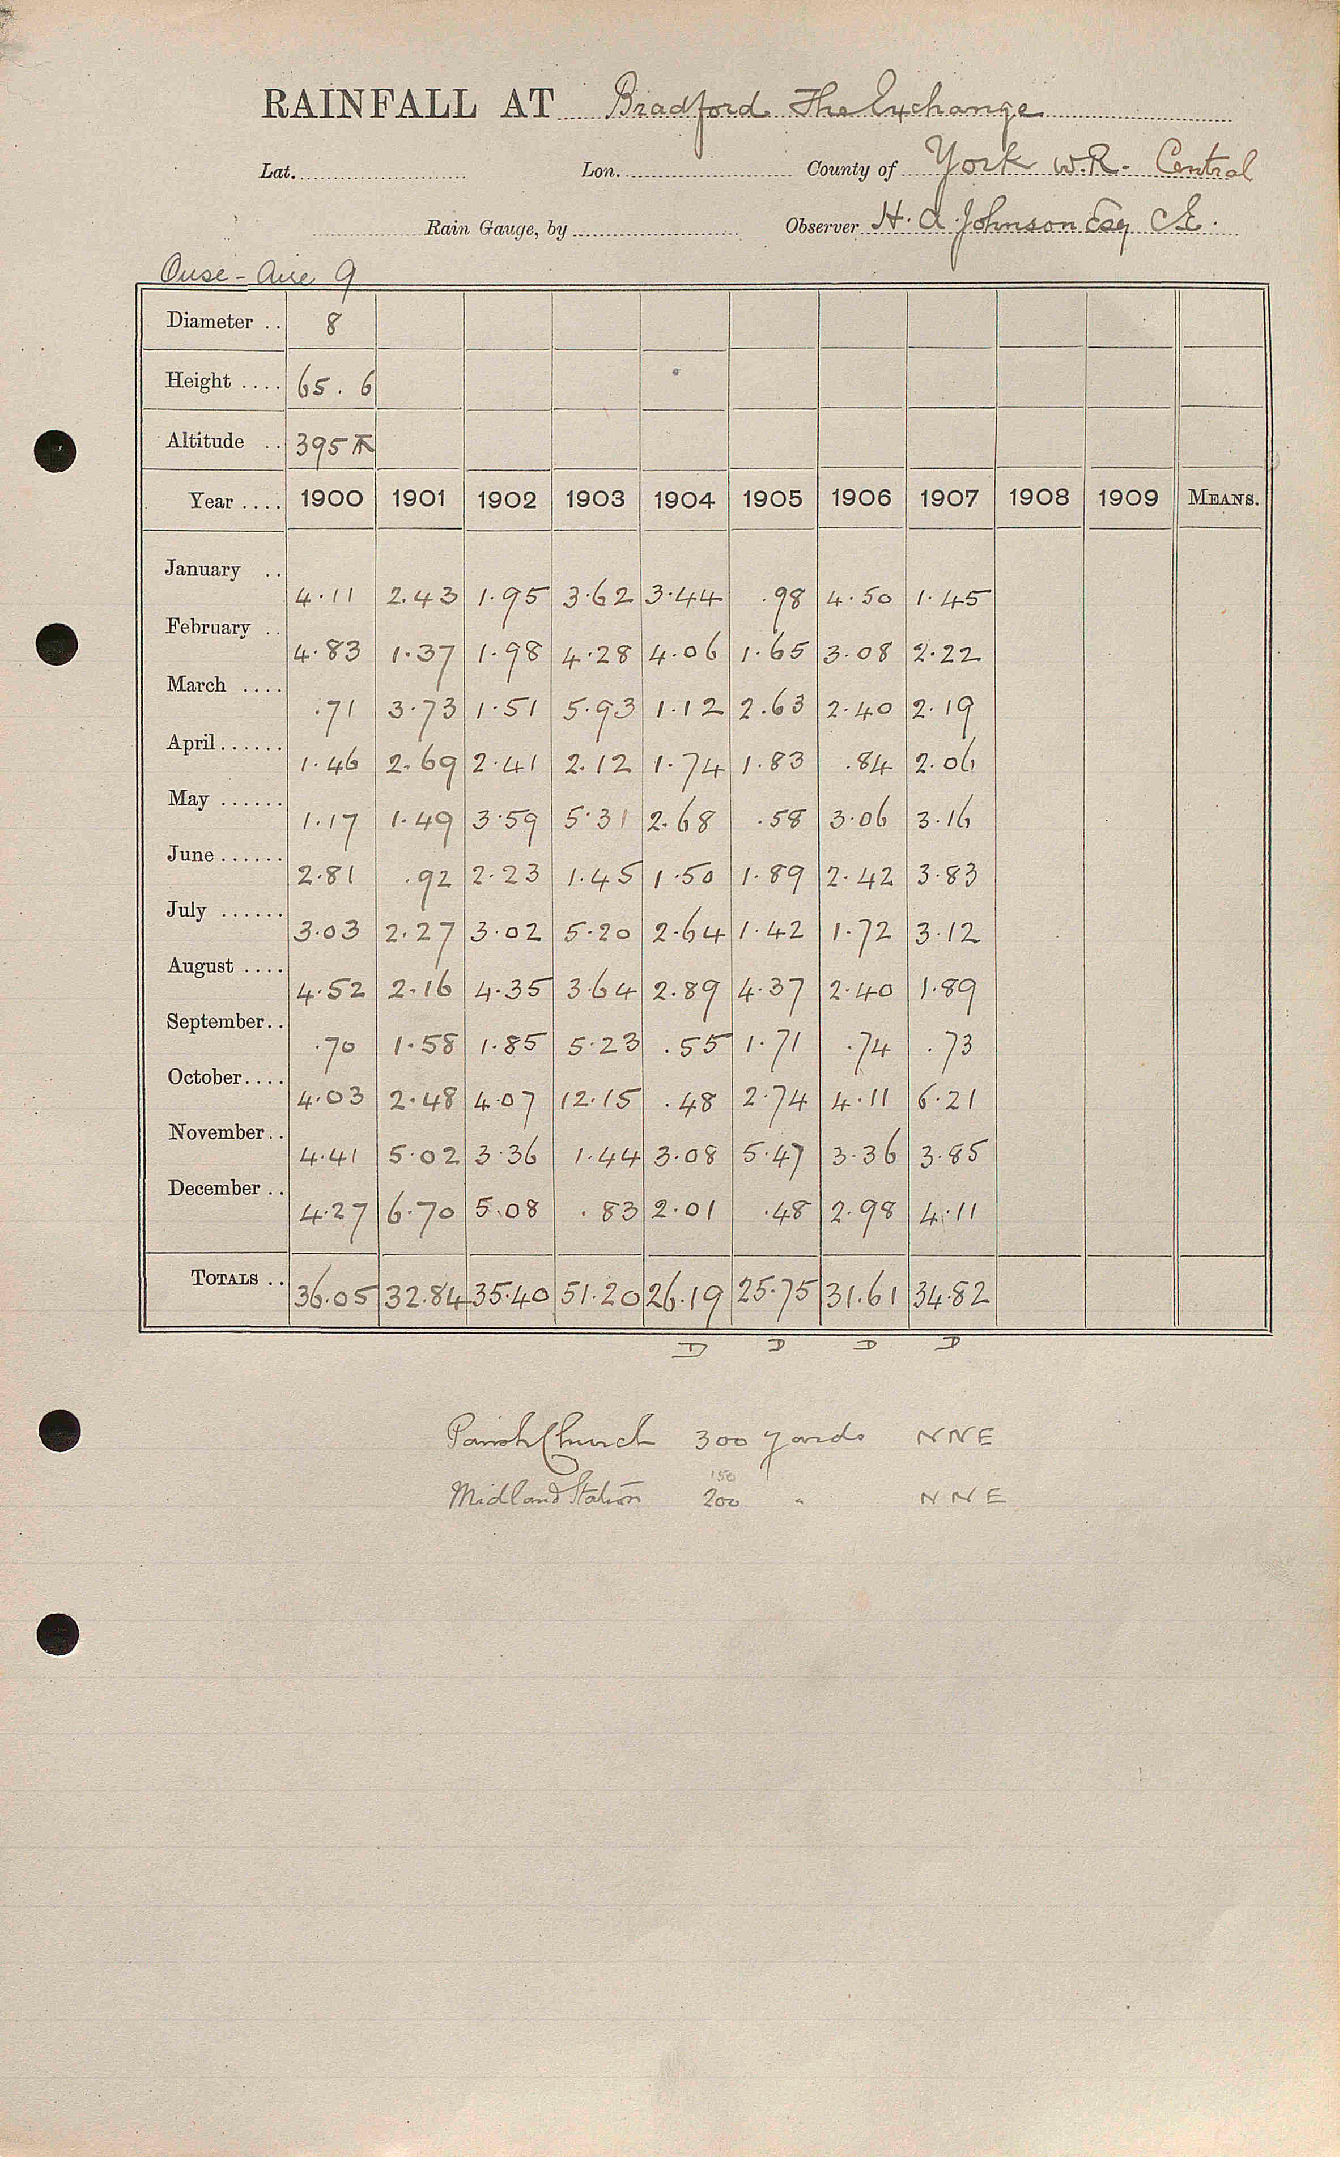 RAINFALL AT Bradford The Exchange
Lat. Lon. County of York W.R. Central
Rain Gauge, by Observer H. A. Johnson Esq C.E.
Ouse - Aire 9
Diameter .. 8
Height .... 65.6
Altitude .. 395
Year .... 1900 1901 1902 1903 1904 1905 1906 1907 1908 1909 MEANS.
January .. 4.11 2.43 1.95 3.62 3.44 .98 4.50 1.45
February .. 4.83 1.37 1.98 4.28 4.06 1.65 3.08 2.22
March .... .71 3.73 1.51 5.93 1.12 2.63 2.40 2.19
April...... 1.46 2.69 2.41 2.12 1.74 1.83 .84 2.06
May ...... 1.17 1.49 3.59 5.31 2.68 .58 3.06 3.16
June ...... 2.81 .92 2.23 1.45 1.50 1.89 2.42 3.83
July ...... 3.03 2.27 3.02 5.20 2.64 1.42 1.72 3.12
August .... 4.52 2.16 4.35 3.64 2.89 4.37 2.40 1.89
September.. .70 1.58 1.85 5.23 .55 1.71 .74 .73
October.... 4.03 2.48 4.07 12.15 .48 2.74 4.11 6.21
November.. 4.41 5.02 3.36 1.44 3.08 5.47 3.36 3.85
December .. 4.27 6.70 5.08 .83 2.01 .48 2.98 4.11
TOTALS .. 36.05 32.84 35.40 51.20 26.19 25.75 31.61 34.82
D D D D
Parish Church 300 yards NNE
150
Midland Station 200 " NNE